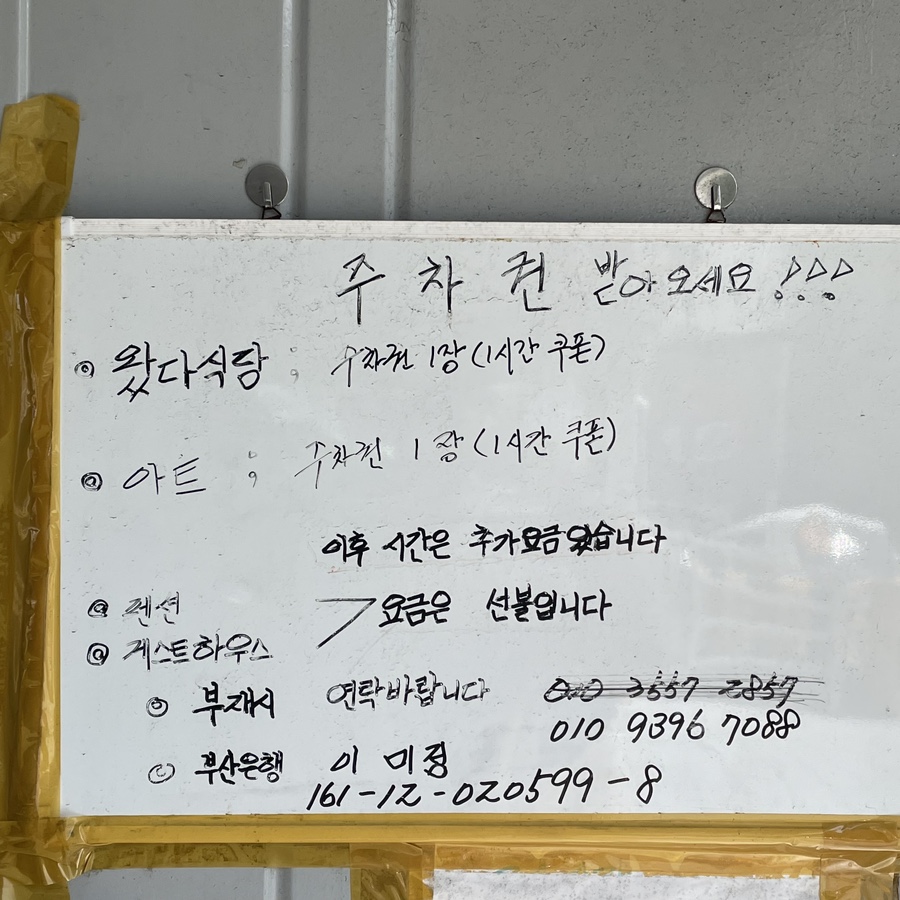 주차권 받아오세요!!!
◎ 왔다식당 : 주차권 1장(1시간 쿠폰)
◎ 아트 : 주차권 1장(1시간 쿠폰)
이후 시간은 추가요금있습니다
◎ 펜션
요금은 선불입니다
◎ 게스트하우스
◎ 부재시 연락바랍니다
010 9396 7088
◎ 부산은행 이미정
161-12-020599-8